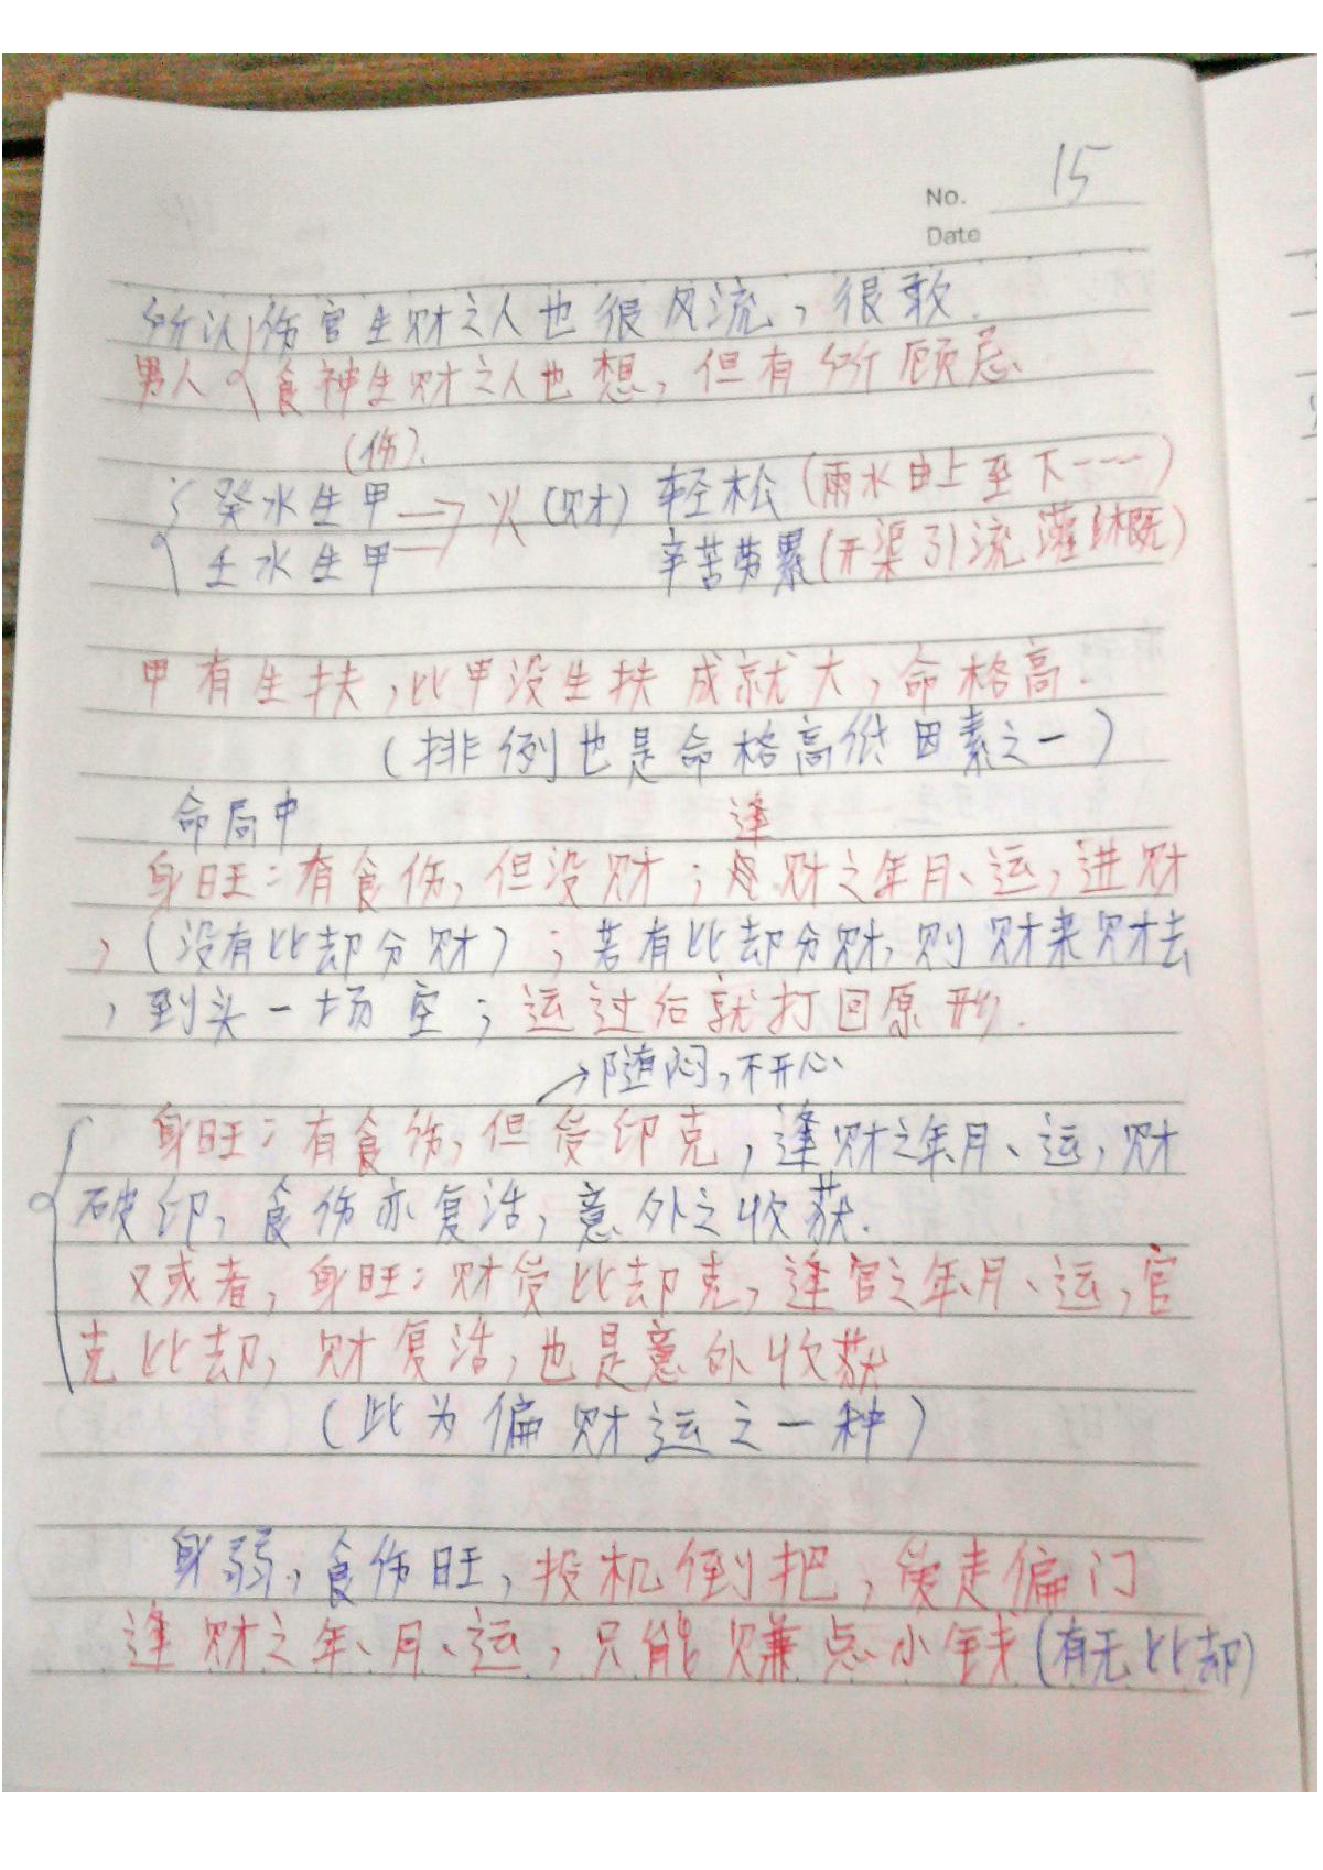 No. 15
Date
所以 伤官生财之人也很风流，很敢.
男人 食神生财之人也想，但有所顾忌.
(伤).
癸水生甲 → 火(财) 轻松(雨水由上至下----)
壬水生甲 → 辛苦劳累(开渠引流灌溉)
甲有生扶，比甲没生扶成就大，命格高.
(排例也是命格高低因素之一)
命局中 逢
身旺:有食伤，但没财；财之年、月、运，进财
，(没有比却分财)；若有比却分财，则财来财去
，到头一场空；运过后就打回原形.
→ 闷，不开心
身旺:有食伤，但受印克，逢财之年、月、运，财
破印，食伤亦复活，意外之收获.
又或者，身旺:财受比却克，逢官之年、月、运，官
克比却，财复活，也是意外收获
(此为偏财运之一种)
身弱，食伤旺，投机倒把，偏门
逢财之年、月、运，只能赚点小钱(有无比却)